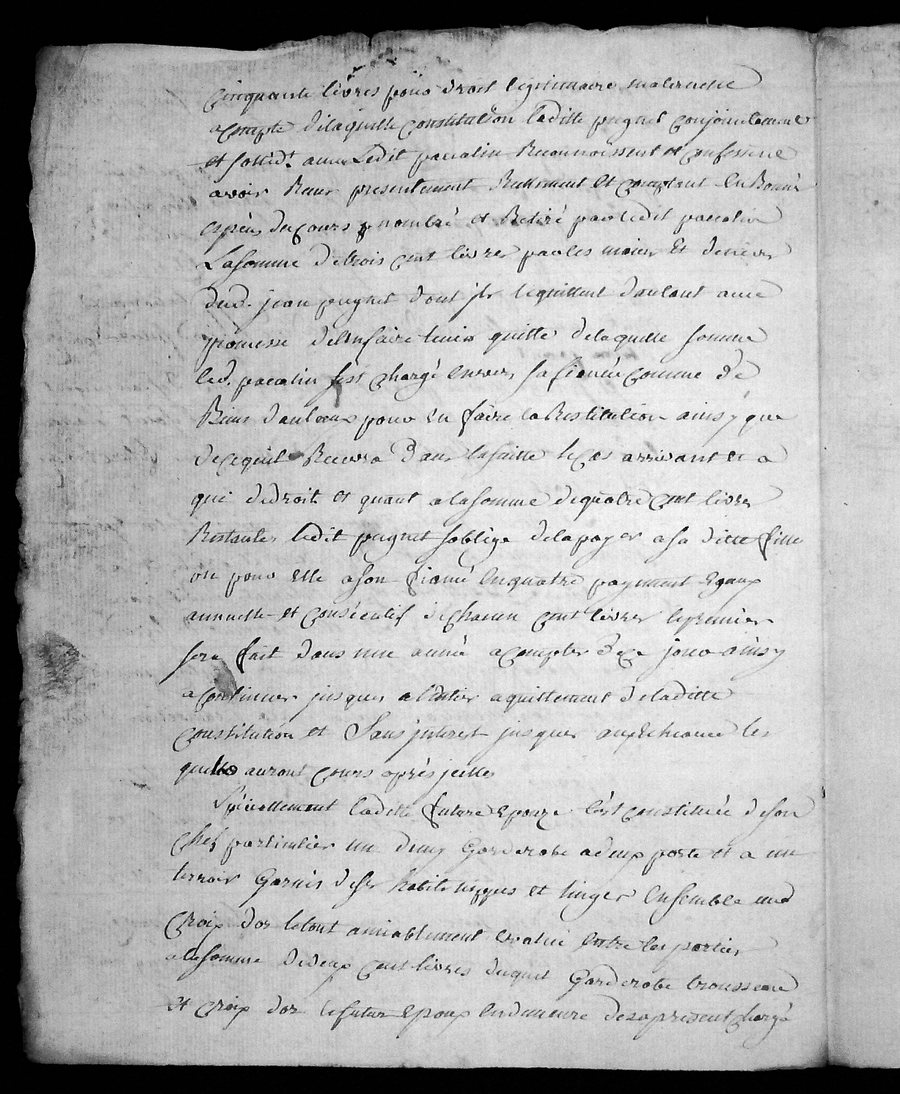 Cinquante livres pour droit legitimaire maternelle
acompte delaquelle constitution laditte pugnet conjointement
et sollid.t avec Ledit pacalin Reconnoissent et confessent
avoir Reçu presentement Reellement Et comptant En Bonnes
espèces du cours nombré et Retiré par ledit pacalin
Lasomme detrois cent livres par les mains Et deniers
dud. jean pugnet dont ils lequittent dautant avec
promesse delenfaire tenir quitte delaquelle somme
led. pacalin sest chargé Envers sa fiancée comme de
Biens dautrui pour En faire la Restitution ainsy que
decequil Recevra Dans lasuitte lecas arrivant et a
qui dedroit et quant alasomme dequatre cent livres
Restantes ledit pugnet soblige delapayer asa ditte fille
ou pour elle ason fiancé Enquatre payement Egaux
annuels et consécutifs dechacun cent livres lepremier
sera fait dans une année acompter dece jour ainsy
acontinuer jusques alentier aquittement deladitte
constitution et Sans jnterest jusques auxEcheance les
quelles auront cours après jcelles
Spéciallement laditte future Epouze sest constituée deson
chef particulier un Garderobe adeux porte et a un
terroir Garnis deses habits nippes et linges Ensemble une
croix dor letout amiablement Evalué Entre les parties
alasomme dedeux cent livres duquel Garderobe trousseau
et croix dor lefutur Epoux Endemeure desapresent chargé